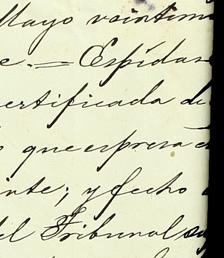 Mayo veintiun
e. = Espídas
ertificada de
que espresa e
nte; y fecho
del Tribunal su